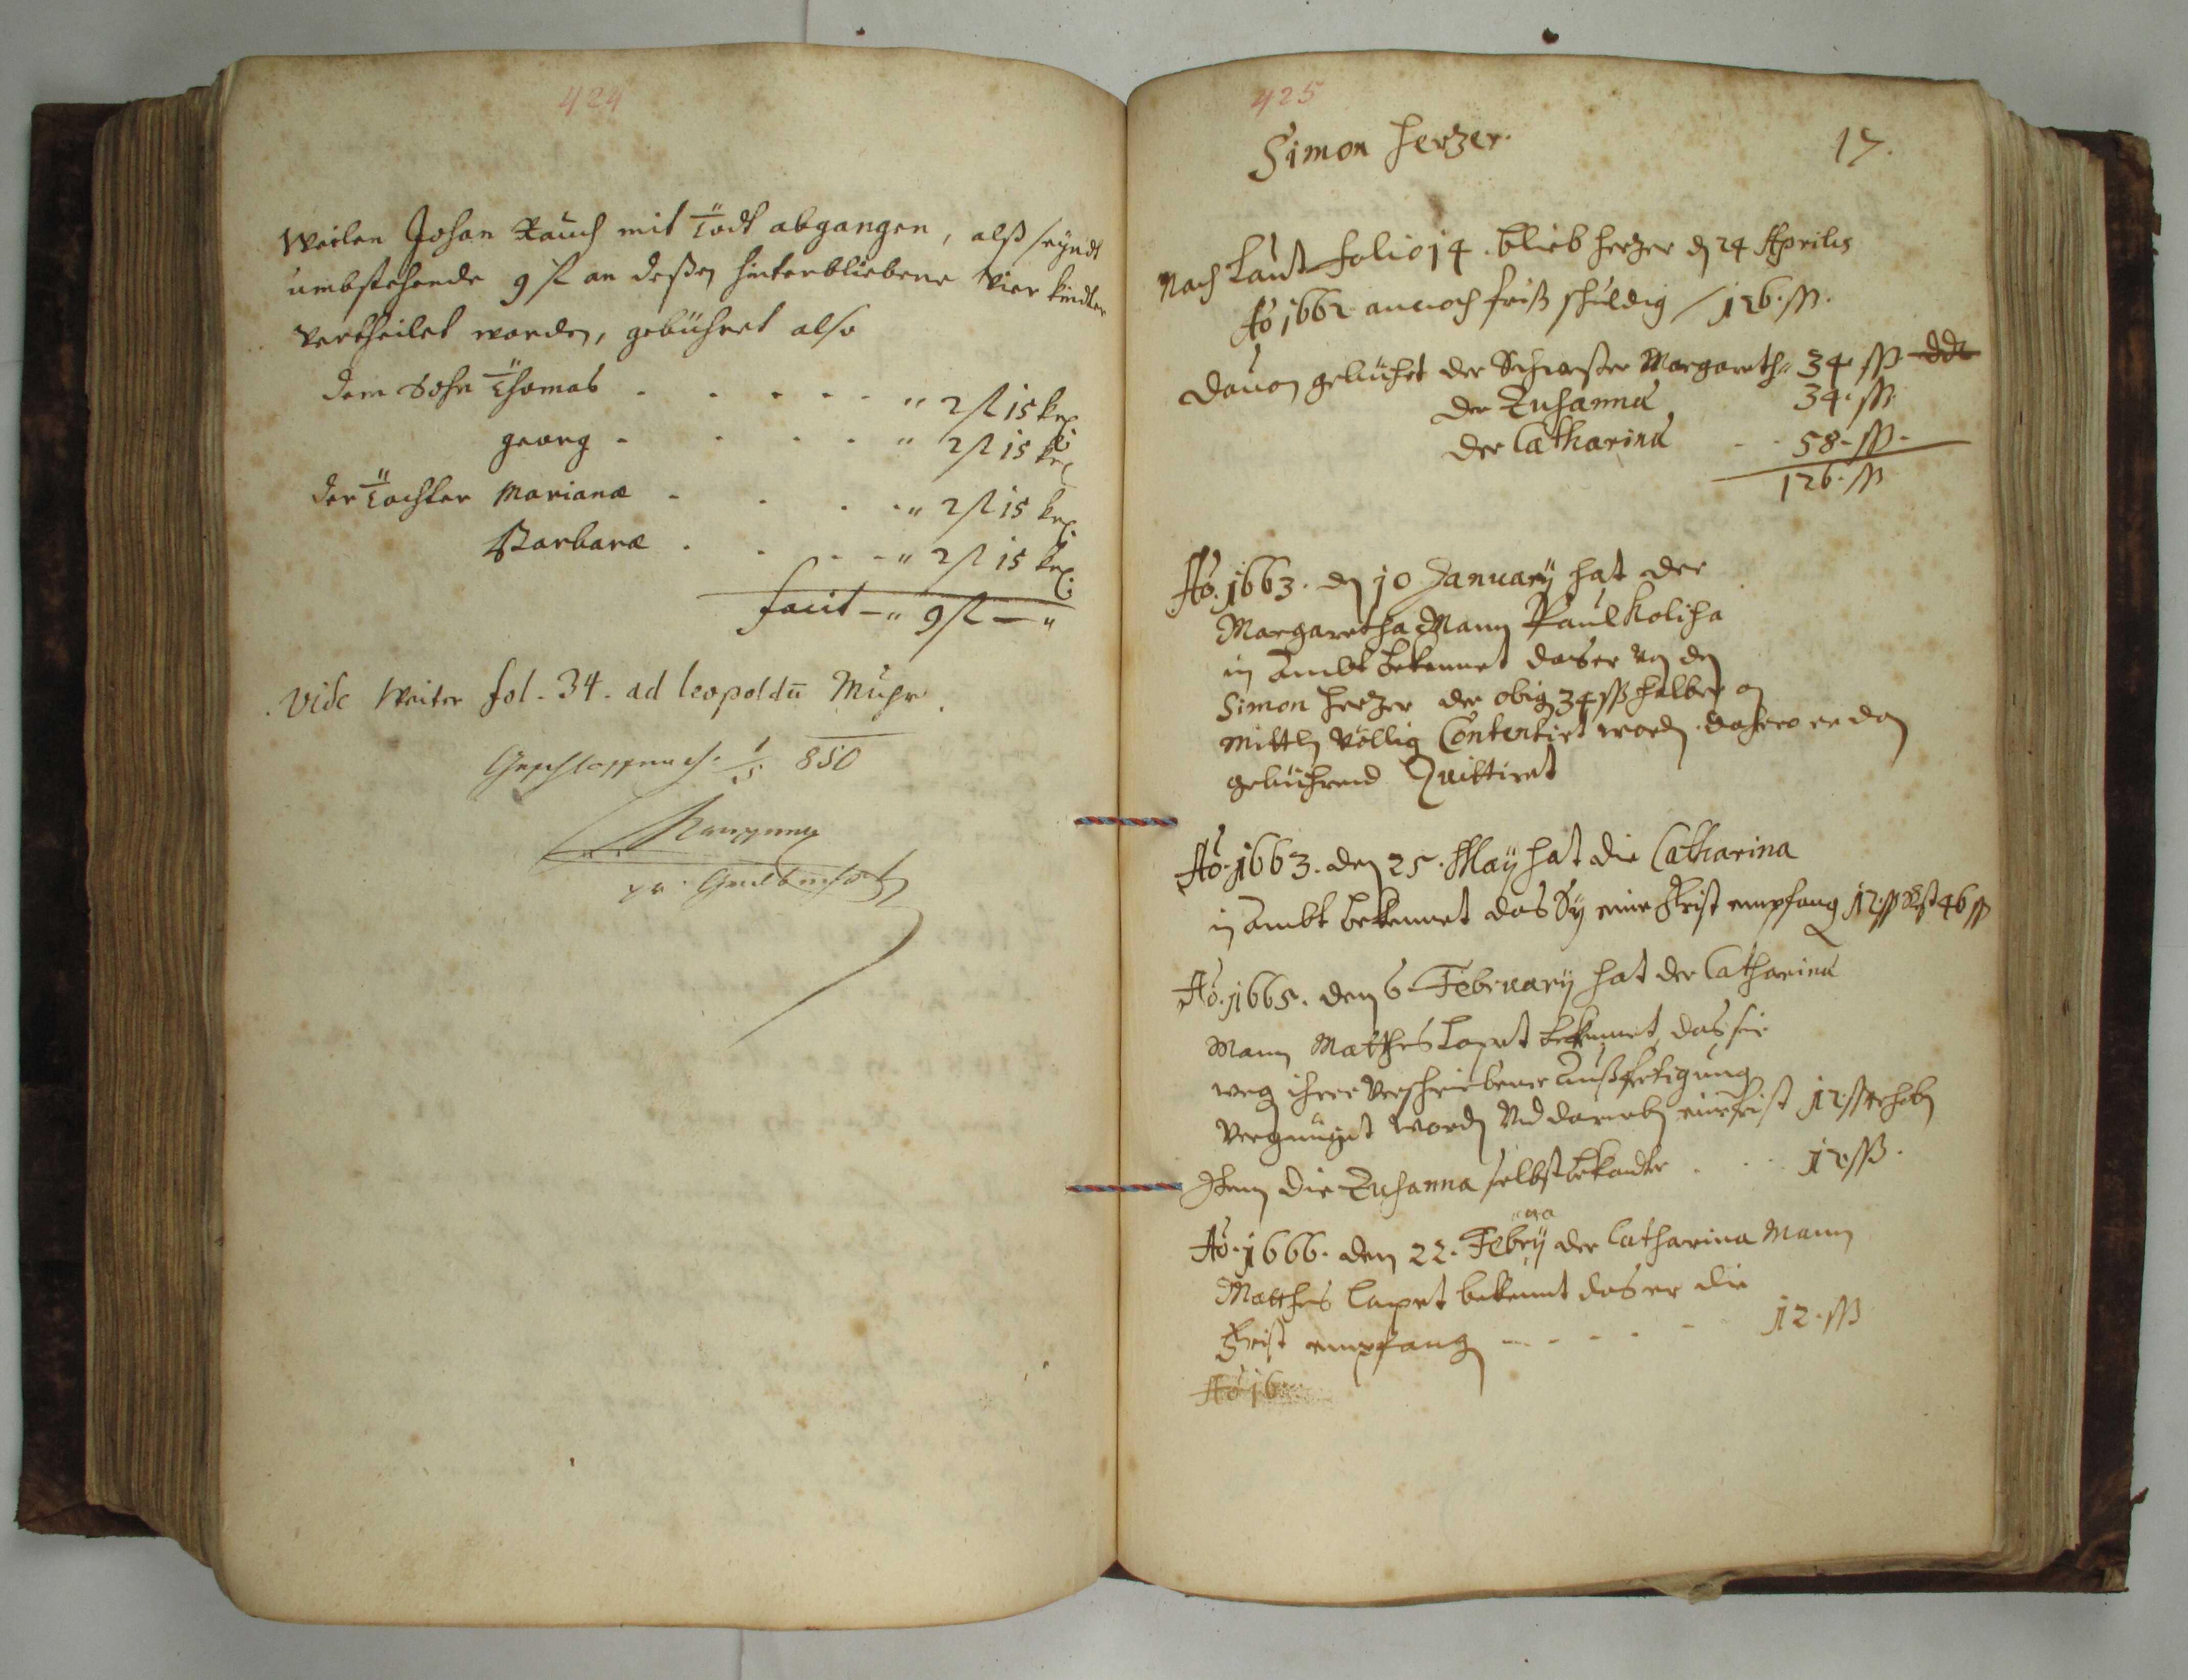 424
Weilen Johan Rauch mit Todt abgangen, alß seyndt
umbstehende 9 fl an deßen hinterbliebene Vier kinder
Vertheilet worden, gebühret also
dem Sohn Thomas - - - - - " 2 fl 15 kr
georg - - - - " 2 fl 15 kr
der Tochter Mariana - - - - " 2 fl 15 kr
Barbara - - - - " 2 fl 15 kr
facit - " 9 fl - "
Vide Weiter fol. 34. ad leopoldū Muhr.
850
425
Simon Herzer.
17.
Nach Laut folio 14. blieb herzer den 24 Aprilis
Ao 1662 annoch friß schuldig / 126. ßß.
Dauon gebühret der Schwester Margareth. 34. ßß ddt
der Zusanna 34. ßß
der Catharina - - 58. ßß.
126. ßß
Ao. 1663. den 10 January hat der
Margaretha Mann Paul Kolisha
in Ambt bekennet das er von den
Simon herzer der obig 34 ßß halber
mittln völlig Contentirt worden. dahero er den
gebührend Quittiret
Ao. 1663. den 25. May hat die Catharina
in Ambt bekennet das Sy eine Frist empfang 12. ßß Rest 46 ßß
Ao. 1665. den 6 February hat der Catharina
Mann Matthes Lapet bekennet, das sie
weg ihrer verschriebener Außfertigung
Vergnüget worden Vnd darneben eine frist 12. ßß erhoben
Item die Zusanna selbst bekandter . . . 12 ßß.
Ao. 1666. den 22. Febry der Catharina Mann
Matthes Lapet bekennt das er die
Frist empfang - - - - - 12. ßß
Ao 16